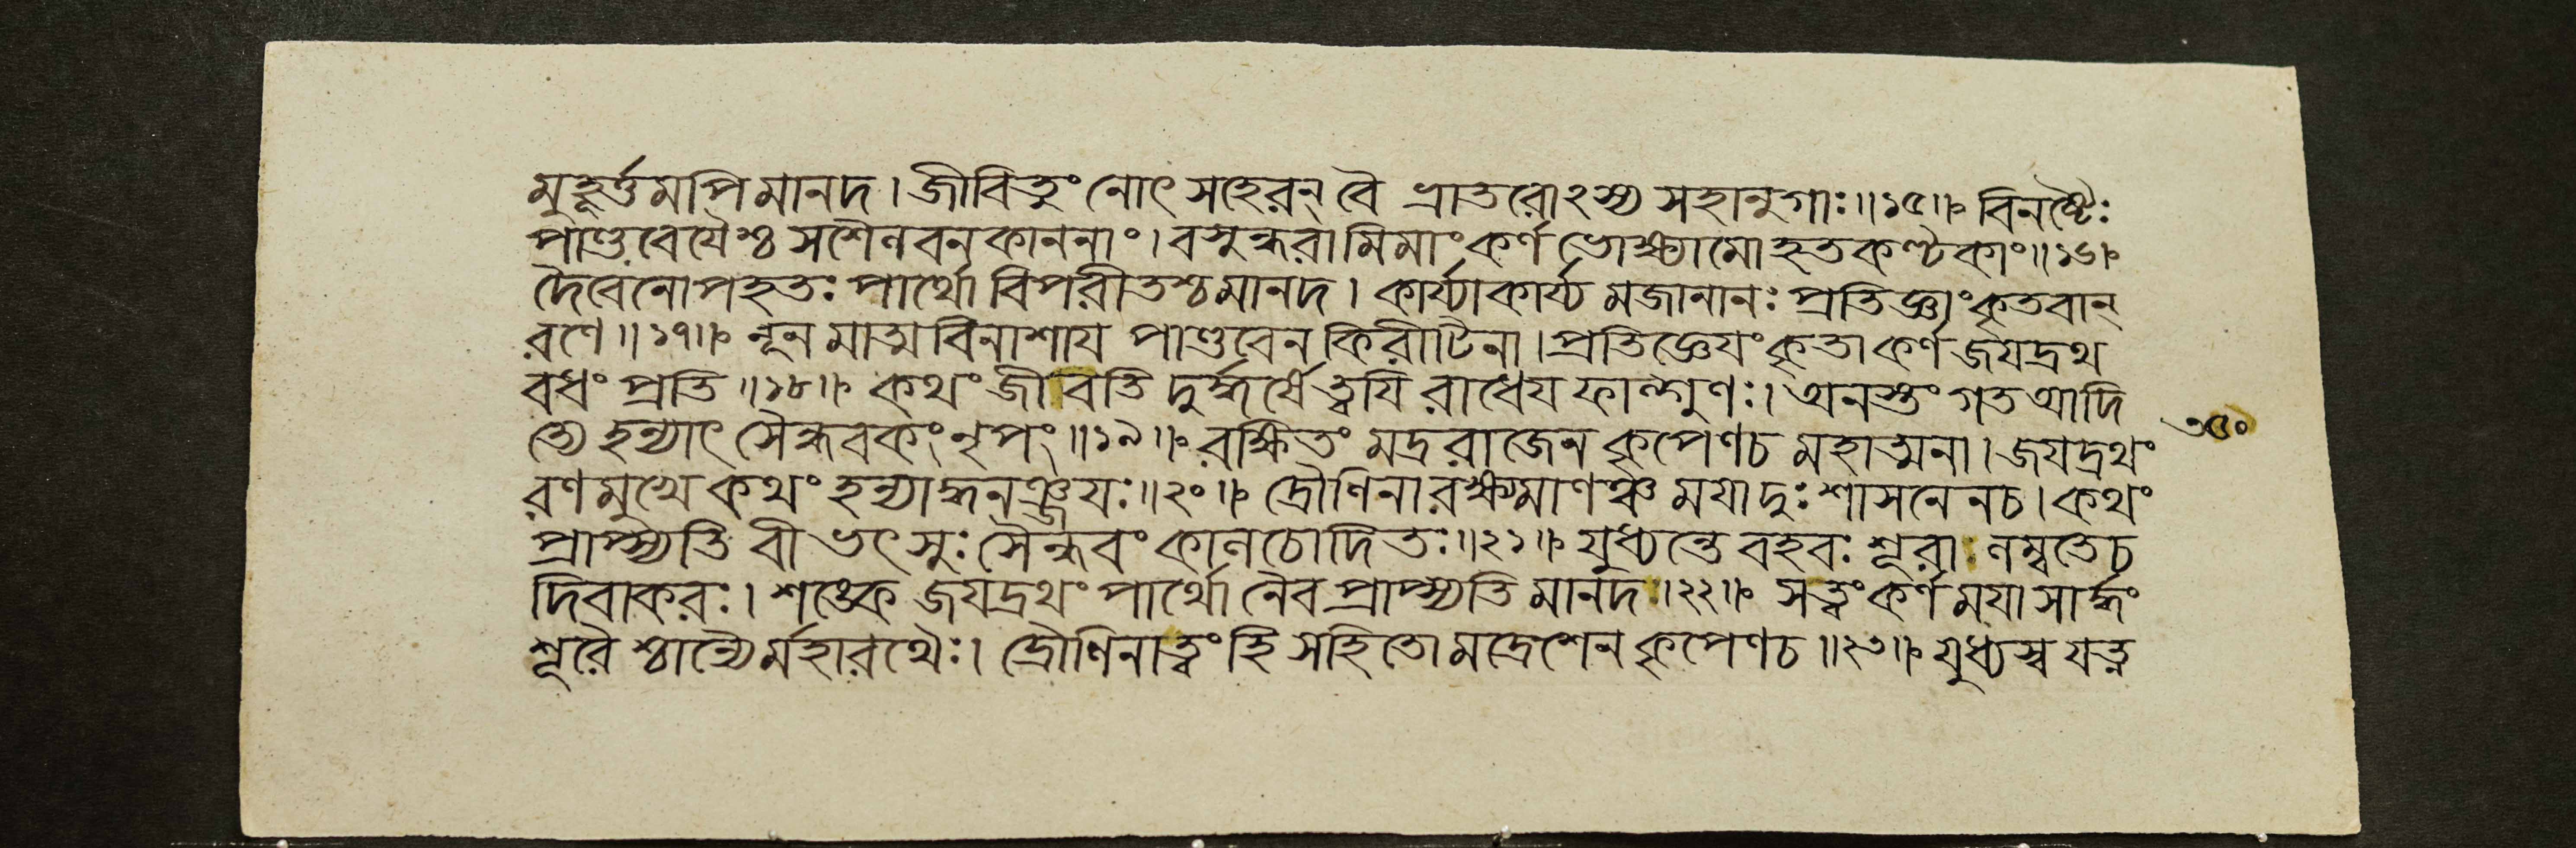 মুহূর্ত্তমপি মানদ। জীবিতুং নোৎসহেরন্ বৈ ভ্রাতরোঽস্য সহানুগাঃ॥১৫॥ বিনষ্টৈঃ
পাণ্ডবেযৈশ্চ সশৈলবনকাননাং। বসুন্ধরামিমাং কর্ণ ভোক্ষ্যামো হতকণ্টকাং॥১৬॥
দৈবেনোপহতঃ পার্থো বিপরীতশ্চ মানদ। কার্য্যাকার্য্যমজানানঃ প্রতিজ্ঞাং কৃতবান্
রণে॥১৭॥ নূনমাত্মবিনাশায পাণ্ডবেন কিরীটিনা। প্রতিজ্ঞেযং কৃতা কর্ণ জযদ্রথ
বধং প্রতি॥১৮॥ কথং জীবতি দুর্দ্ধর্ষে ত্বযি রাধেয ফাল্গুণঃ। অনস্তং গত আদি
ত্যে হন্যাৎ সৈন্ধবকং নৃপং॥১৯॥ রক্ষিতং মদ্ররাজেন কৃপেণ চ মহাত্মনা। জযদ্রথং
রণমুখে কথং হন্যাদ্ধনঞ্জযঃ॥২০॥ দ্রৌণিনা রক্ষ্যমাণঞ্চ মযা দুঃশাসনেন চ। কথং
প্রাপ্স্যতি বীভৎসুঃ সৈন্ধবং কালচোদিতঃ॥২১॥ যুধ্যন্তে বহবঃ শূরা লম্বতে চ
দিবাকরঃ। শঙ্কে জযদ্রথং পার্থো নৈব প্রাপ্স্যতি মানদ॥২২॥ স ত্বং কর্ণ মযা সার্দ্ধং
শূরৈশ্চান্যৈর্মহারথৈঃ। দ্রৌণিনা ত্বং হি সহিতো মদ্রেশেন কৃপেণ চ॥২৩॥ যুধ্যস্ব যত্ন
৩৫০